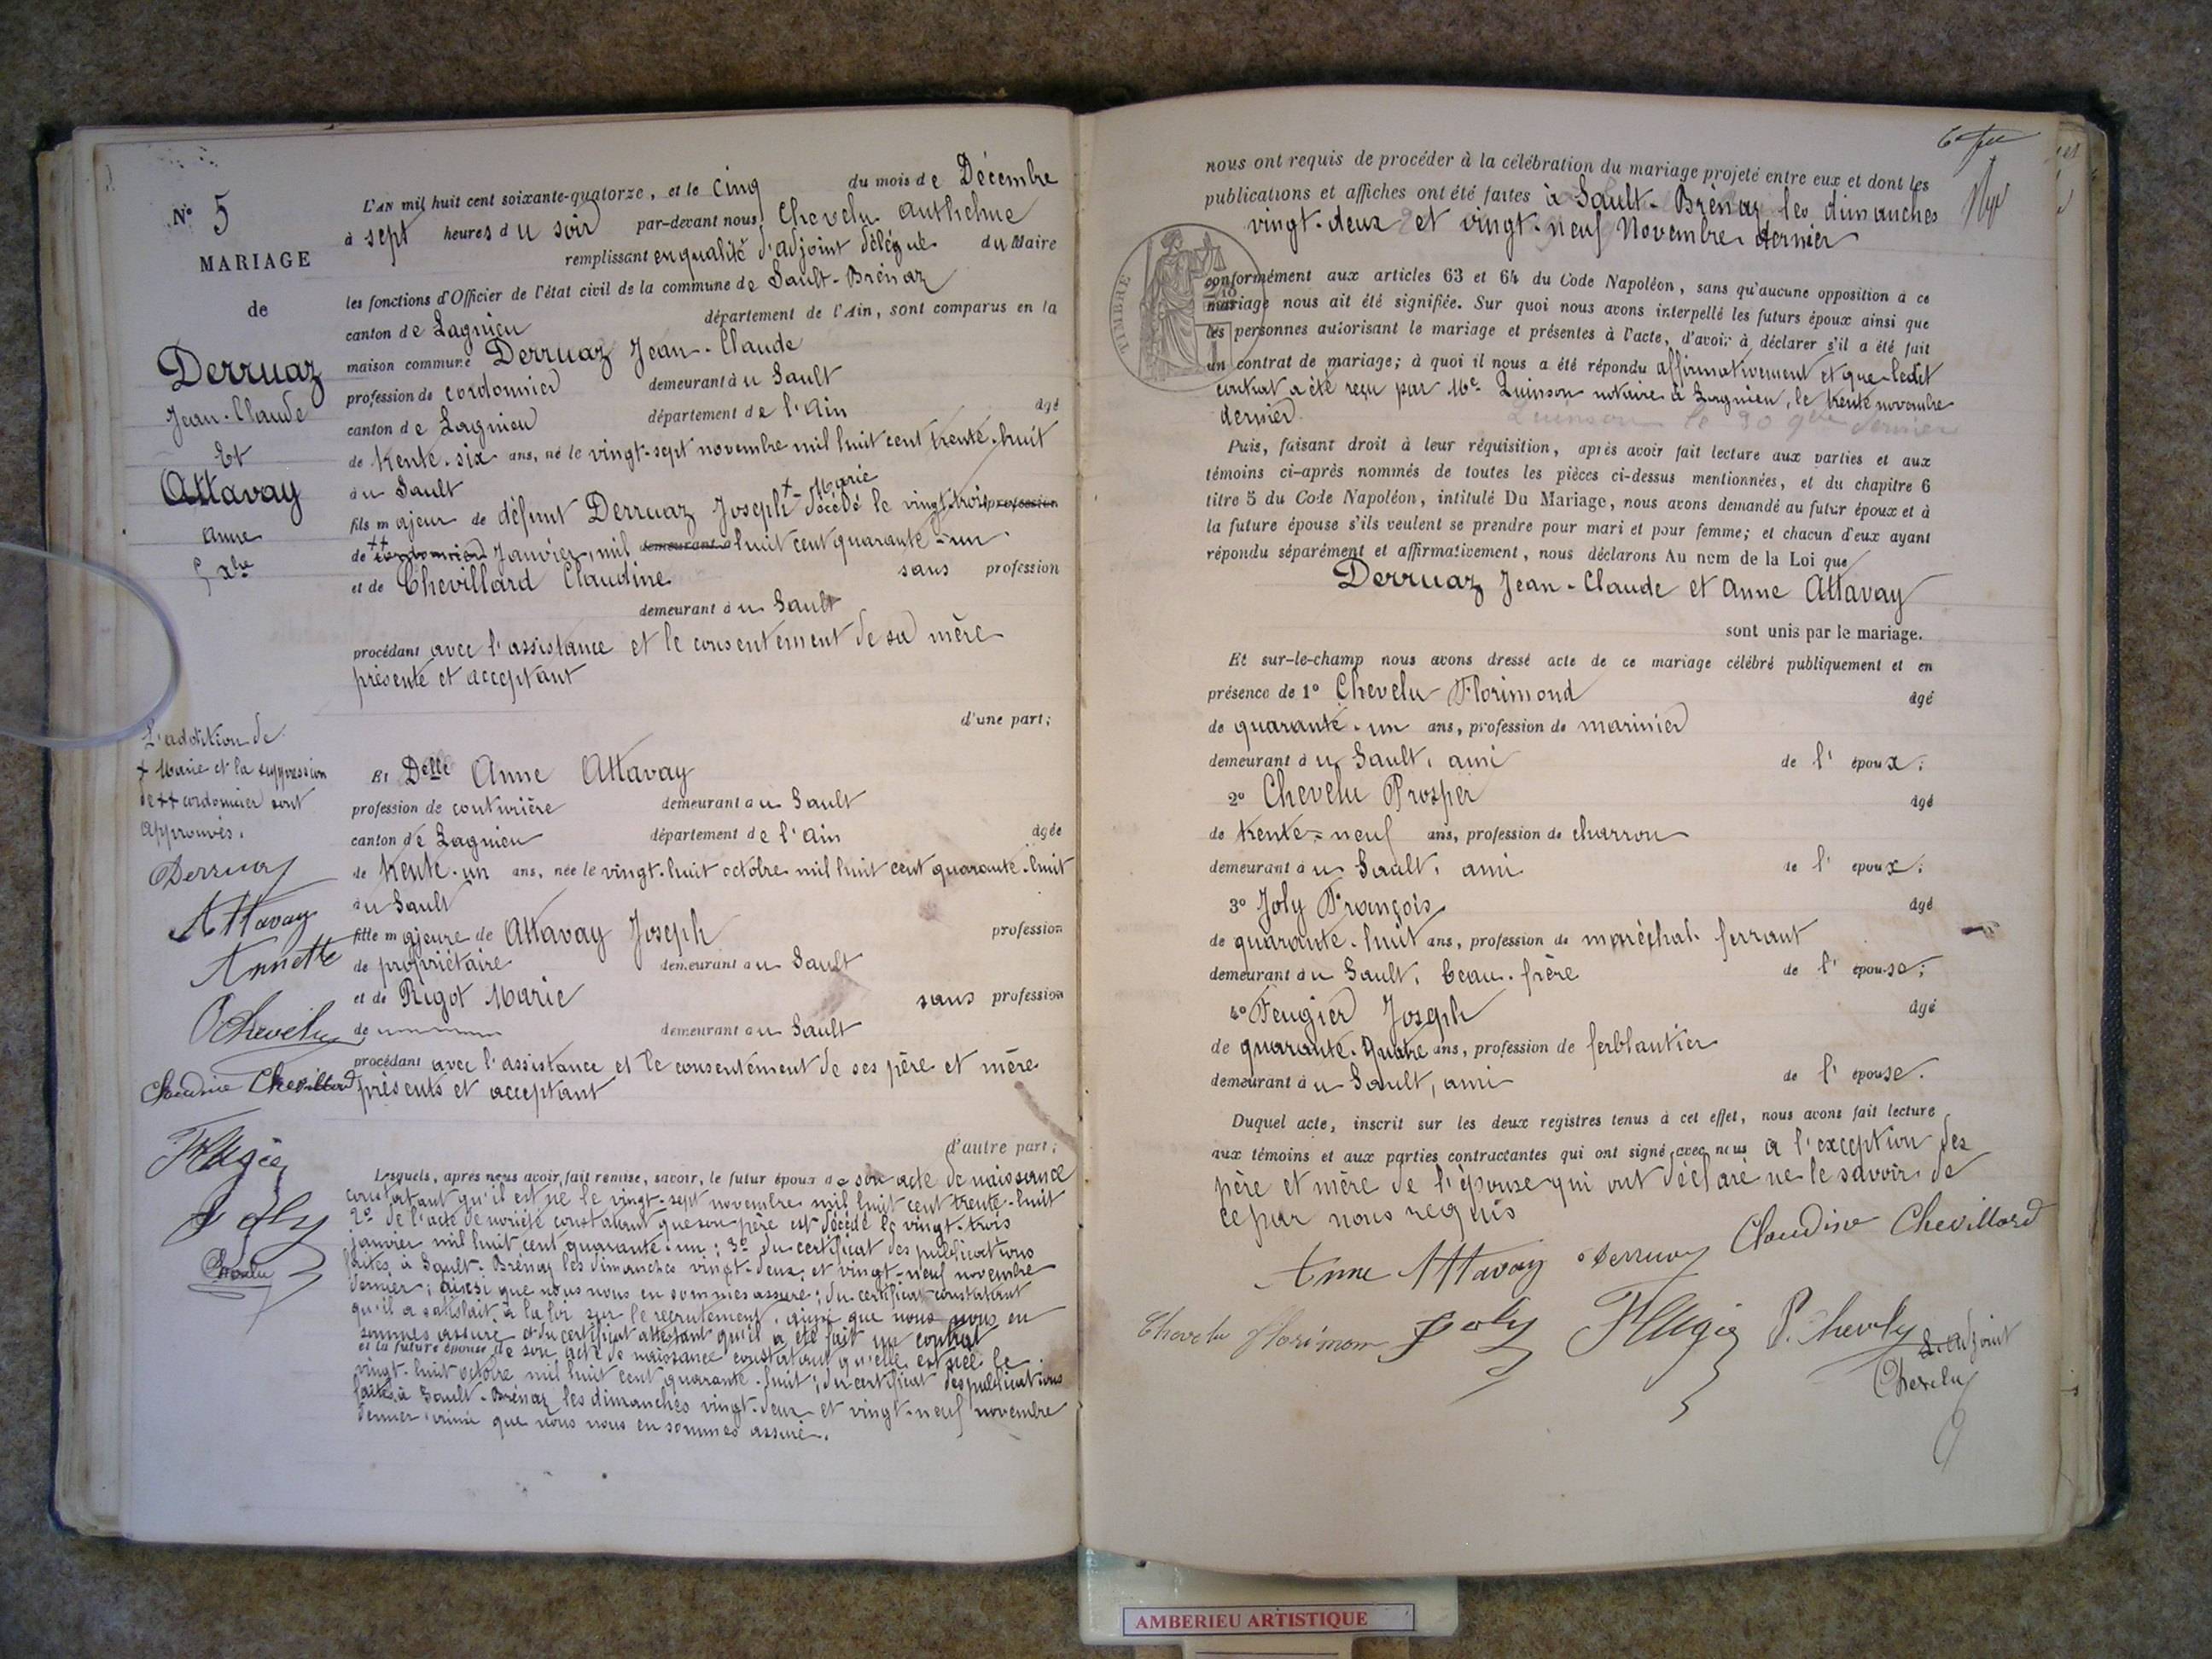 N° 5
MARIAGE
de
Derruaz
Jean-Claude
Et
Attavay
Anne
L'AN mil huit cent soixante-quatorze, et le cinq du mois de Décembre
à sept heures du soir par-devant nous Chevelu Anthelme
remplissant en qualité d'adjoint délégué du Maire
les fonctions d'Officier de l'état civil de la commune de Sault-Brénaz
canton de Lagnieu département de l'Ain, sont comparus en la
maison commune Derruaz Jean-Claude
profession de cordonnier demeurant à u Sault
canton de Lagnieu département de l'Ain âgé
de trente-six ans, né le vingt-sept novembre mil huit cent trente-huit
à u Sault
fils majeur de défunt Derruaz Joseph + Marie décédé le vingt-trois profession
de ++ cordonnier Janvier, mil demeurant à huit cent quarante-un
et de Chevillard Claudine sans profession
demeurant à u Sault
procédant avec l'assistance et le consentement de sa mère
présente et acceptant
d'une part;
L'addition de
+ Marie et la suppression
de ++ cordonnier sont
approuvés.
Derruaz
Attavay
Annette
Chevelu
Claudine Chevillard
Joly
Chevelu
Et Delle Anne Attavay
profession de couturière demeurant à u Sault
canton de Lagnieu département de l'Ain âgée
de trente-un ans, née le vingt-huit octobre mil huit cent quarante-huit
à u Sault
fille majeure de Attavay Joseph profession
de propriétaire demeurant à u Sault
et de Rigot Marie sans profession
de demeurant à u Sault
procédant avec l'assistance et le consentement de ses père et mère
présents et acceptant
d'autre part;
Lesquels, après nous avoir fait remise, savoir, le futur époux de son acte de naissance
constatant qu'il est né le vingt-sept novembre mil huit cent trente-huit
2° de l'acte de noriété constatant que son père est décédé le vingt-trois
janvier mil huit cent quarante-un; 3° du certificat des publications
faites à Sault-Brénaz les dimanches vingt-deux et vingt-neuf novembre
dernier; ainsi que nous nous en sommes assuré; du certificat constatant
qu'il a satisfait à la loi sur le recrutement, ainsi que nous nous en
sommes assuré et du certificat attestant qu'il a été fait un contrat
et la future épouse de son acte de naissance constatant qu'elle est née le
vingt-huit octobre mil huit cent quarante-huit; du certificat des publications
faites à Sault-Brénaz les dimanches vingt-deux et vingt-neuf novembre
dernier ainsi que nous nous en sommes assuré.
nous ont requis de procéder à la célébration du mariage projeté entre eux et dont les
publications et affiches ont été faites à Sault-Brénaz les dimanches
vingt-deux et vingt-neuf Novembre dernier
TIMBRE
conformément aux articles 63 et 64 du Code Napoléon, sans qu'aucune opposition à ce
mariage nous ait été signifiée. Sur quoi nous avons interpellé les futurs époux ainsi que
les personnes autorisant le mariage et présentes à l'acte, d'avoir à déclarer s'il a été fait
un contrat de mariage; à quoi il nous a été répondu affirmativement et que ledit
contrat a été reçu par Me Quinson notaire à Lagnieu, le trente novembre
dernier.
Puis, faisant droit à leur réquisition, après avoir fait lecture aux parties et aux
témoins ci-après nommés de toutes les pièces ci-dessus mentionnées, et du chapitre 6
titre 5 du Code Napoléon, intitulé Du Mariage, nous avons demandé au futur époux et à
la future épouse s'ils veulent se prendre pour mari et pour femme; et chacun d'eux ayant
répondu séparément et affirmativement, nous déclarons Au nom de la Loi que
Derruaz Jean-Claude et Anne Attavay
sont unis par le mariage.
Et sur-le-champ nous avons dressé acte de ce mariage célébré publiquement et en
présence de 1° Chevelu Florimond âgé
de quarante-un ans, profession de marinier
demeurant à u Sault, ami de l'époux;
2° Chevelu Prosper âgé
de trente-neuf ans, profession de charron
demeurant à u Sault, ami de l'époux;
3° Joly François âgé
de quarante-huit ans, profession de maréchal-ferrant
demeurant à u Sault, beau-frère de l'épouse;
4° Feugier Joseph âgé
de quarante-quatre ans, profession de ferblantier
demeurant à u Sault, ami de l'épouse.
Duquel acte, inscrit sur les deux registres tenus à cet effet, nous avons fait lecture
aux témoins et aux parties contractantes qui ont signé avec nous à l'exception des
père et mère de l'épouse qui ont déclaré ne le savoir de
ce par nous requis
Anne Attavay Derruaz Claudine Chevillard
Chevelu Florimon Joly P. Chevelu L'adjoint
Chevelu
AMBERIEU ARTISTIQUE